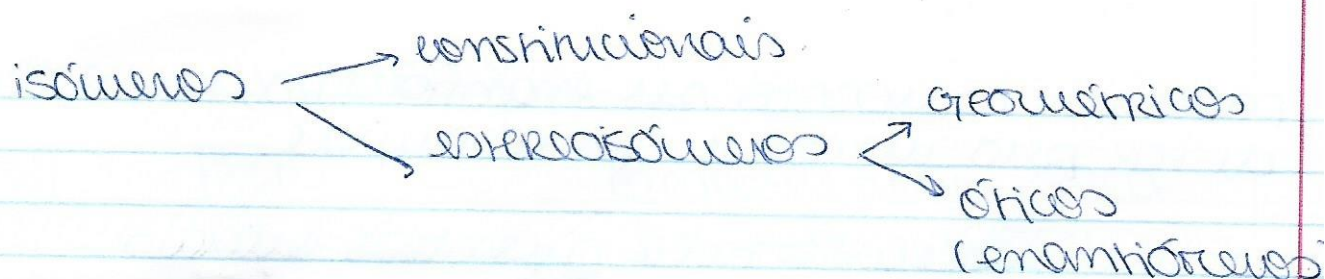 isómeros
constitucionais
estereoisómeros
Geométricos
óticos
(enantiómeros)